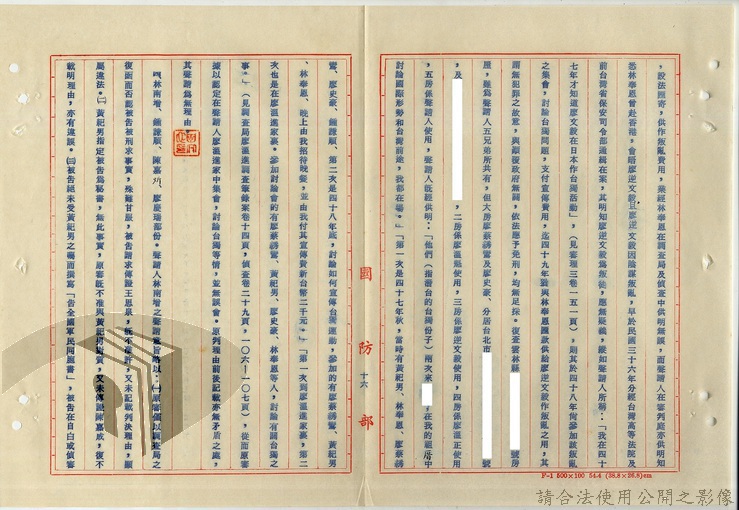 ，設法匯寄，供作叛亂費用，業經林奉恩在調查局及偵查中供明無誤，而聲請人在審判庭亦供明知
悉林奉恩曾赴香港，會晤廖逆文毅且廖逆文毅因陰謀叛亂，早於民國三十六年分經台灣高等法院及
前台灣省保安司令部通緝在案，其明知廖逆文毅為叛徒，應無疑義，縱如聲請人所稱：「我在四十
七年才知道廖文毅在日本作台獨活動」，（見審理三卷一五一頁），則其於四十八年尚參加該叛亂
之集會，討論台獨問題，支付宣傳費用，迄四十九年復與林奉恩匯款供給廖逆文毅作叛亂之用，其
謂無犯罪之故意，與顛覆政府無關，依法應予免刑，均無足採。復查雲林縣 號房
屋，雖為聲請人五兄弟所共有，但大房廖蔡綉鸞及廖史豪、分居台北市 號
，及 ，二房係廖溫魁使用，三房係廖逆文毅使用，四房係廖溫正使用
，五房係聲請人使用，聲請人既經供明：「他們（指潛台的台獨份子）兩次來 ，在我的起居中
討論國際形勢和台灣前途，我都在場。」「第一次是四十七年秋，當時有黃紀男、林奉恩、廖蔡綉
國防部
十六
鸞、廖史豪、鍾謙順、第二次是四十八年底，討論如何宣傳台獨運動，參加的有廖蔡綉鸞、黃紀男
、林奉恩、晚上由我招待晚餐，並由我付其宣傳費新台幣二千元。」「第一次到廖溫進家裏，第二
次也是在廖溫進家裏。參加討論會的有廖蔡綉鸞、黃紀男、廖史豪、林奉恩等人，討論有關台獨之
事。」（見調查局廖溫進調查筆錄案卷十四頁，偵查卷二十九頁，一〇六—一〇七頁），從而原審
據以認定在聲請人廖溫進家中集會，討論台獨等情，並無誤會。原判理由前後記載亦無矛盾之處，
其聲請為無理由
林南增、鍾謙順、陳嘉 、廖慶瑞部份。聲請人林南增之聲請意旨略以，㈠原審僅以調查局之
復函而否認被告被刑求事實，殊難甘服，被告請求傳證王思泉，既不准許，又未記載判決理由，顯
屬違法。㈡黃紀男指定被告為秘書，無此事實，原審既不准與黃紀男對質，又未傳 陳嘉炘，復不
載明理由，亦有違誤。㈢被告絕未受黃紀男之囑而撰寫「告全國軍民同胞書」，被告在自白或偵審
F-1 500×100 54.4 (38.8×26.8)cm
請合法使用公開之影像